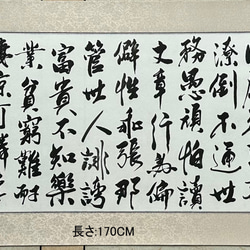 潦倒不通世
務愚頑怕讀
文章行為偏
僻性乖張那
管世人誹謗
富貴不知樂
業貧窮難耐
凄涼可
長さ:170CM